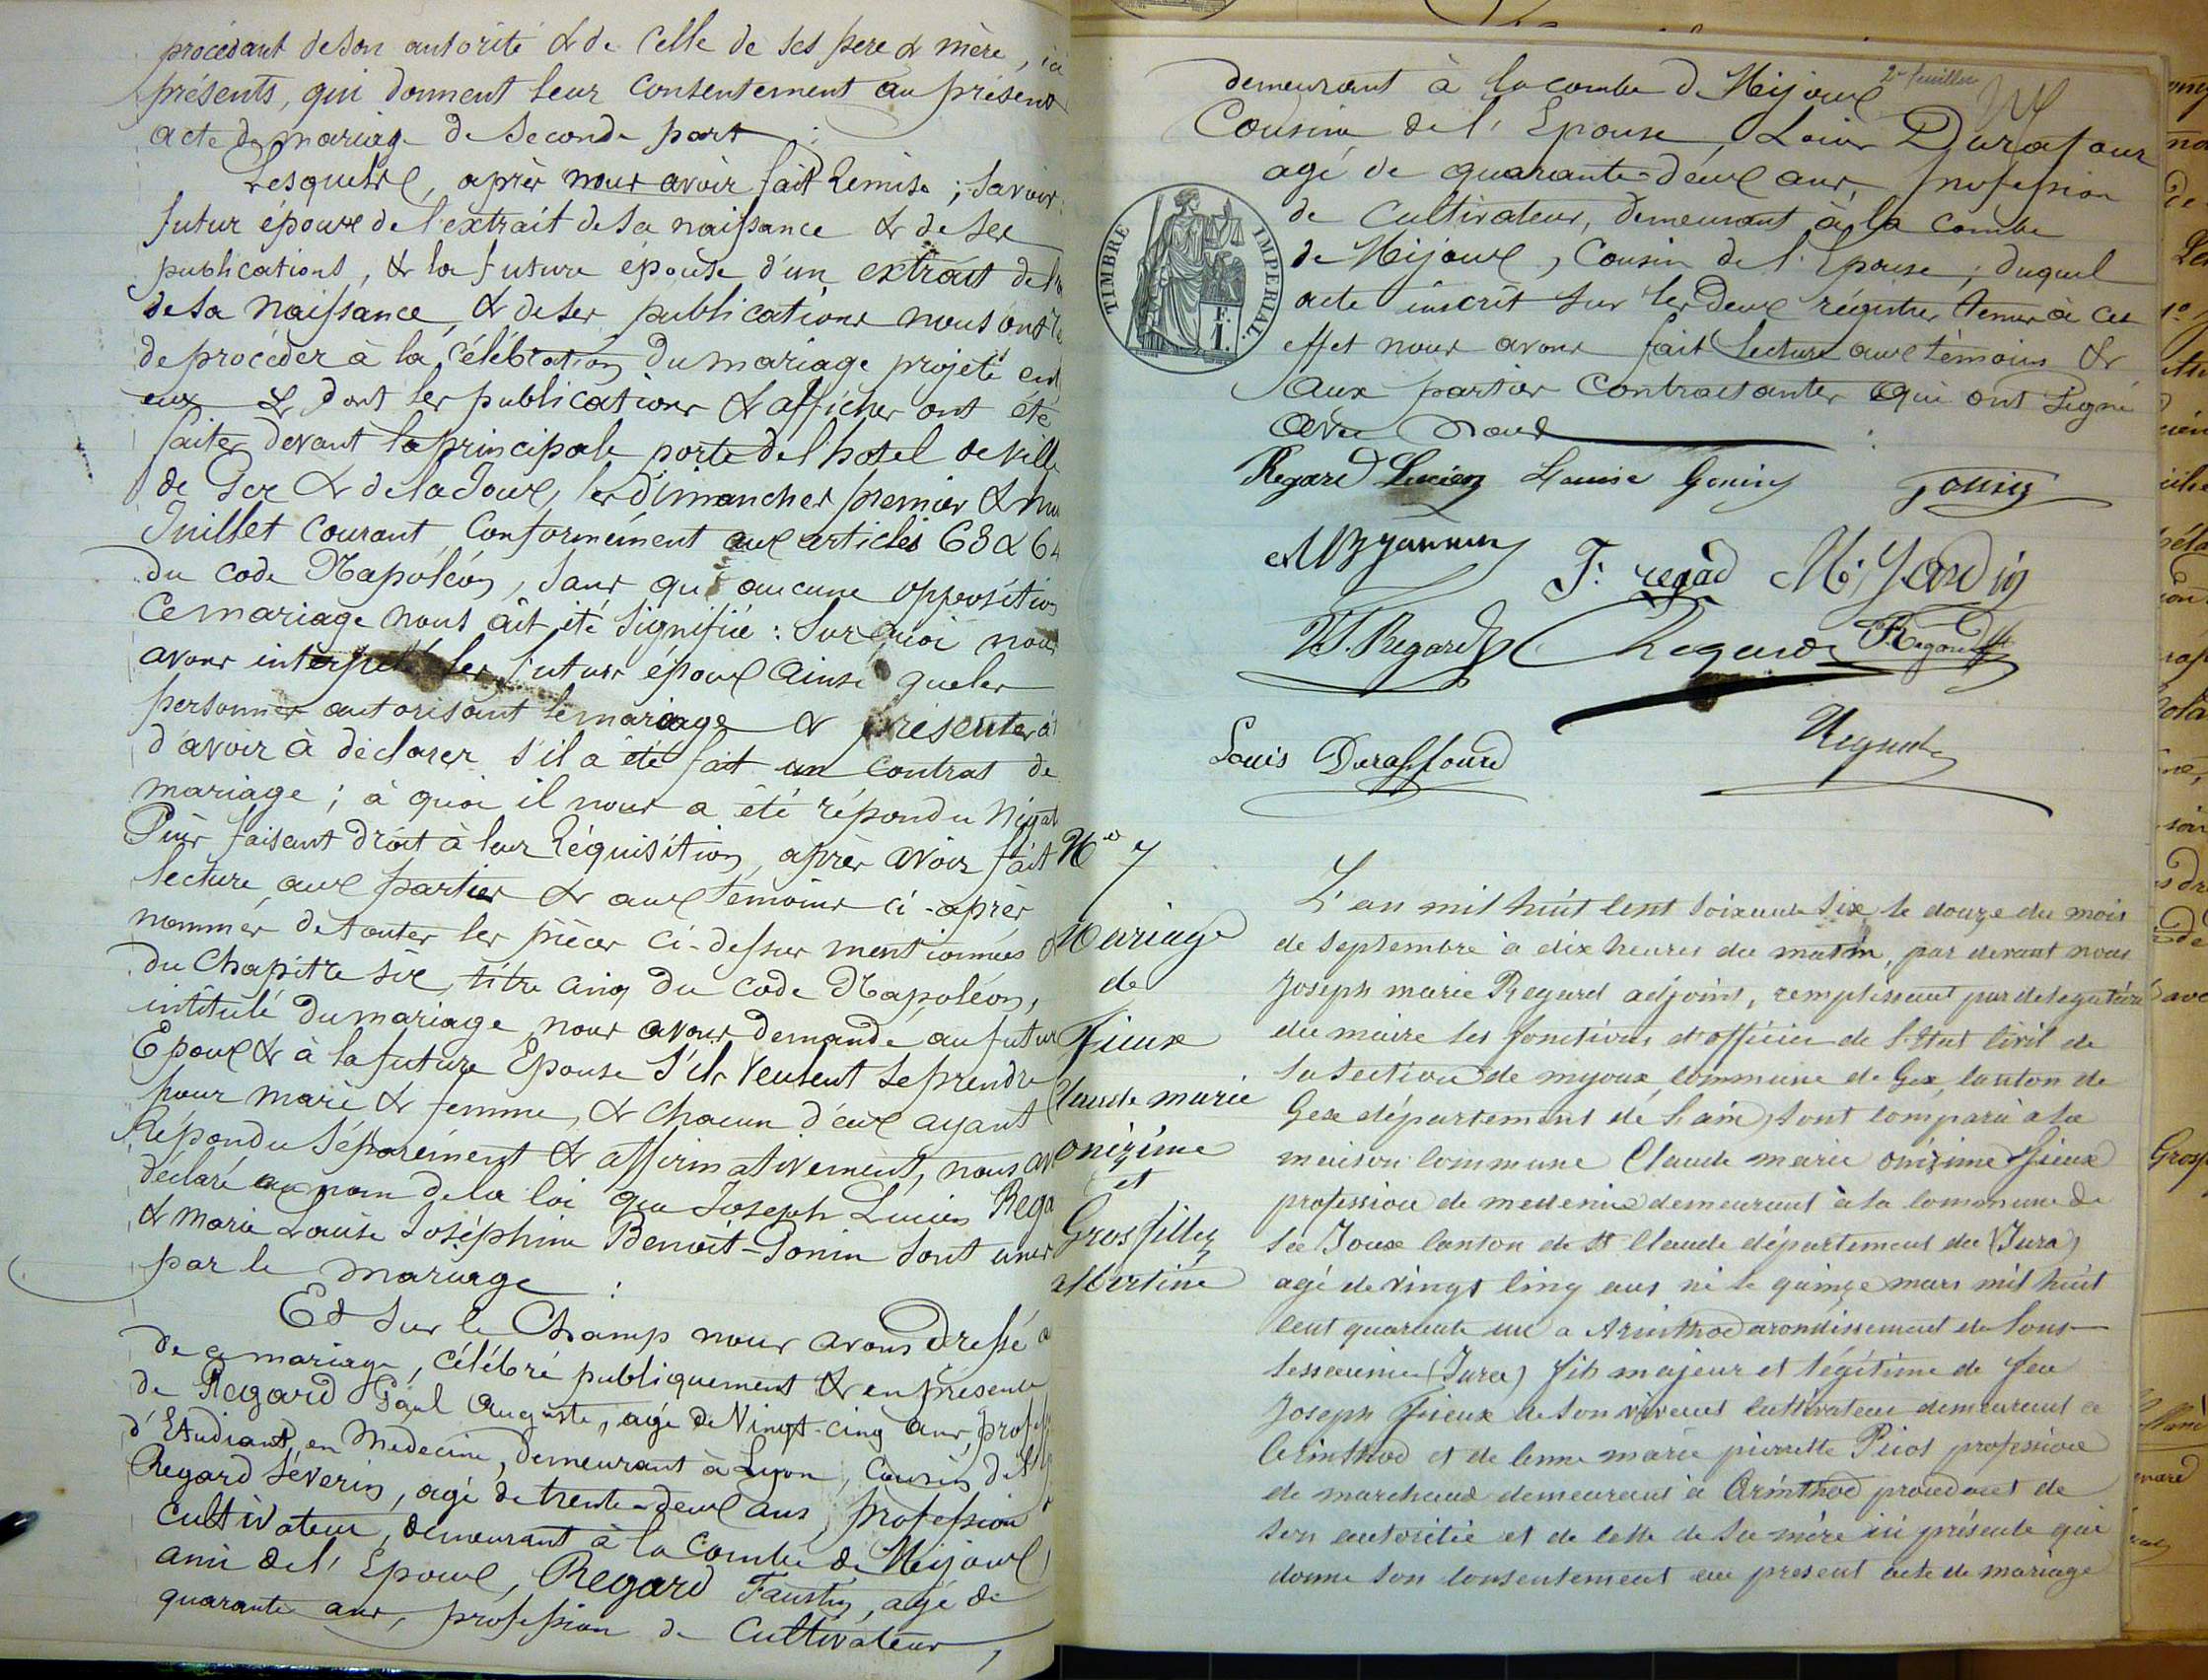 procédant de son autorité & de celle de ses père & mère, ici
présents, qui donnent leur consentement au présent
acte de mariage de seconde part
Lesquels, après nous avoir fait Remise ; Savoir :
futur époux de l'extrait de sa naissance & de ses
publications, & la future épouse d'un extrait de
de sa naissance, & de ses publications nous ont
de procéder à la célébration du mariage projeté
eux & dont les publications & affiches ont été
faites devant la principale porte de l'hotel de ville
de Gex & de la Joux, les dimanches premier &
Juillet courant, Conformément aux articles 63 & 64
du Code Napoléon, Sans qu' aucune opposition
Ce mariage nous ait été signifiée : Sur quoi nous
avons interpellé les futurs époux ainsi que les
personnes autorisant le mariage & présentes
d'avoir à déclarer s'il a été fait un contrat de
mariage ; à quoi il nous a été répondu Négat
Puis faisant droit à leur Réquisition, après avoir fait
lecture aux parties & aux témoins ci-après
nommés de toutes les pièces ci-dessus mentionnées &
du Chapitre six, titre cinq du Code Napoléon,
intitulé du mariage, nous avons demandé au futur
Epoux & à la future Epouse s'ils veulent se prendre
pour mari & femme, & chacun d'eux ayant
Répondu Séparément & affirmativement, nous
déclaré au nom de la loi que Joseph Lucien Rega
& marie Louise Joséphine Benoit-Gonin sont unis
par le mariage
Et sur le Champ nous avons dressé
de ce mariage, célébré publiquement & en présence
de Regard Paul Auguste, agé de Vingt-cinq ans, profess
d'Etudiant en Medecine, demeurant à Lyon, Cousin de
Regard Séverin, agé de trente-deux ans, profession
cultivateur, demeurant à la Combe de Mijoux,
ami de l'Epoux, Regard Faustin, agé de
quarante ans, profession de Cultivateur,
2e feuillet
demeurant à la combe de Mijoux
Cousin de l'Epouse, Louis Durafour
agé de quarante-deux ans, profession
de Cultivateur, demeurant à la combe
de Mijoux, Cousin de l'Epouse ; duquel
acte inscrit sur les deux régistres tenus à cet
effet nous avons fait lecture aux témoins &
aux parties Contractantes qui ont Signé
avec nous
TIMBRE IMPERIAL
Regard Lucien Louise Gonin Gonin
F. regad
Regard Regard
Louis Duraffourd
No 7
Mariage
de
Fieux
Claude marie
onézime
et
Grosfilley
albertine
L'an mil huit cent soixante six le douze du mois
de septembre à dix heures du matin, par devant nous
Joseph marie Regard adjoint, remplissant par delegation
du maire les fonctions d'officier de l'Etat Civil de
la section de myoux, commune de Gex, canton de
Gex département de l'ain, sont comparu a la
maison commune Claude marie onézime fieux
profession de demeurant à la commune de
la Joux canton de St Claude département du (Jura)
agé de vingt cinq ans né le quinze mars mil huit
cent quarante un a Arinthod arondissement de Lons
lesseaunier (Jura) fils majeur et légitime de feu
Joseph fieux de son vivant cultivateur demeurant a
Arinthod et de marie pierrette profession
de marchand demeurant à Arinthod procédant de
son autoritée et de celle de sa mère ici présente qui
donne son consentement au present acte de mariage